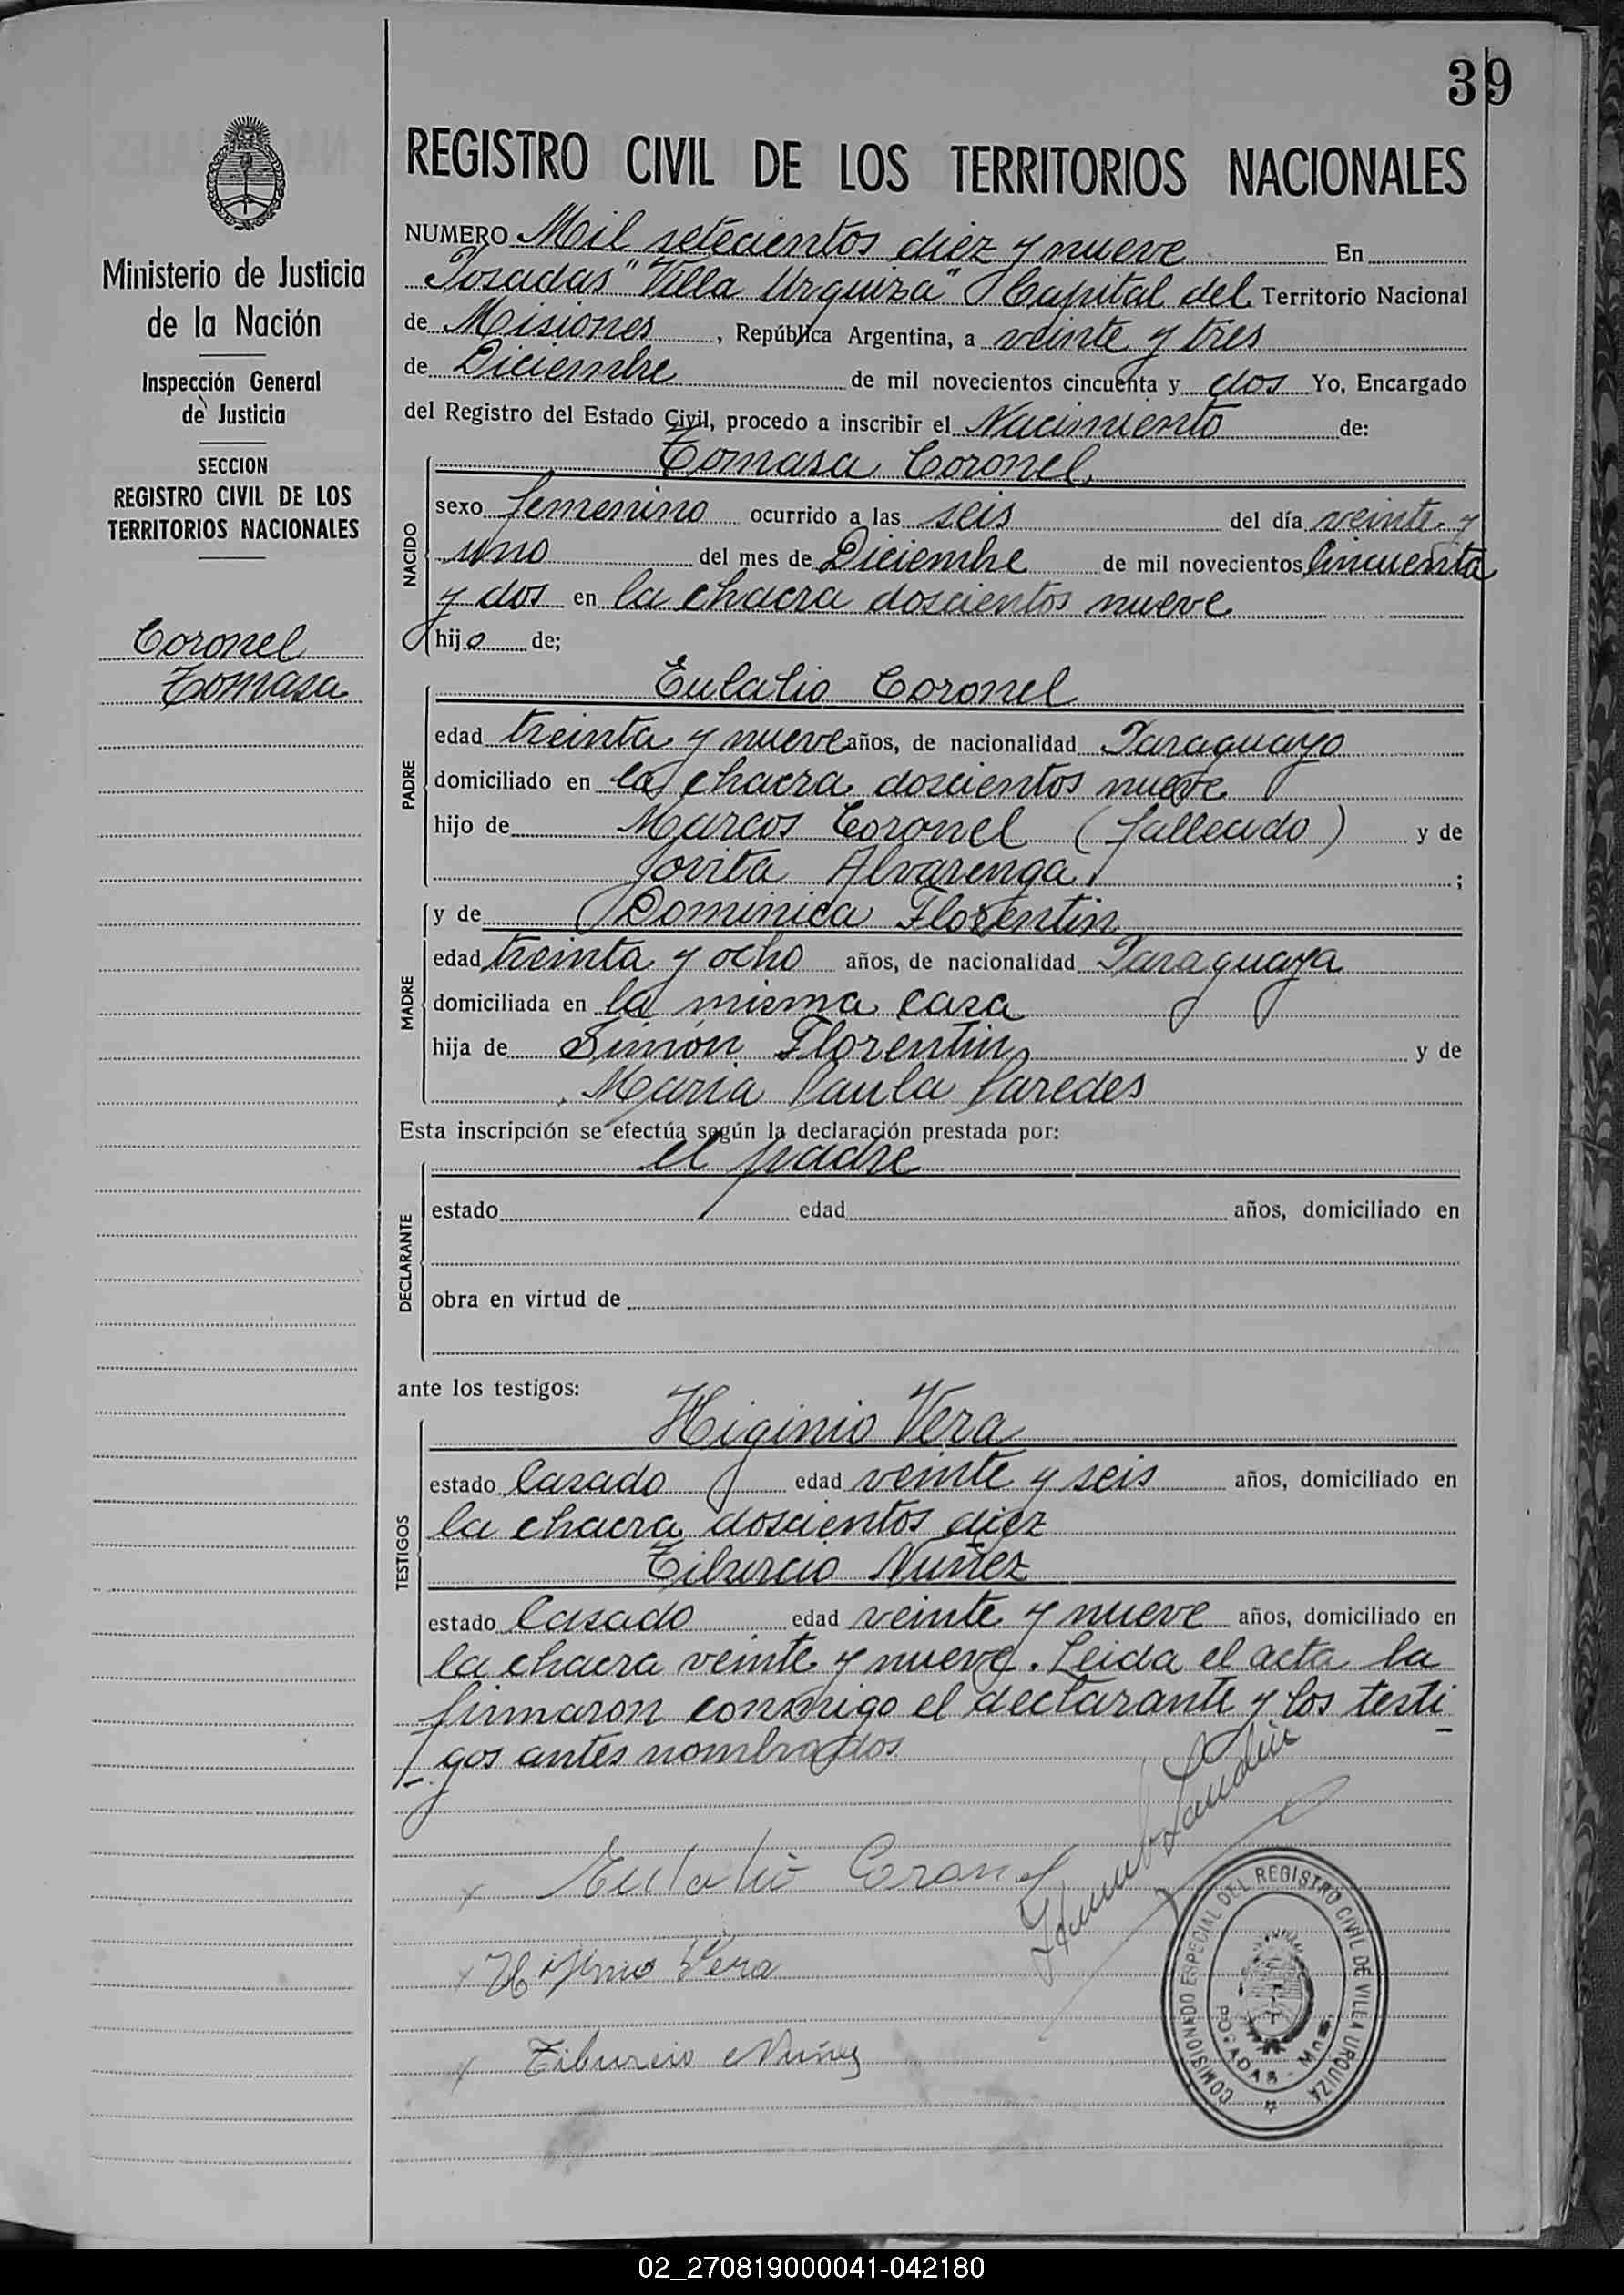 39
REGISTRO CIVIL DE LOS TERRITORIOS NACIONALES
Ministerio de Justicia
de la Nación
Inspección General
de Justicia
SECCION
REGISTRO CIVIL DE LOS
TERRITORIOS NACIONALES
Coronel
Tomasa
NUMERO Mil setecientos diez y nueve En
Posadas "Villa Urquiza" Capital del Territorio Nacional
de Misiones, República Argentina, a veinte y tres
de Diciembre de mil novecientos cincuenta y dos Yo, Encargado
del Registro del Estado Civil, procedo a inscribir el Nacimiento de:
Tomasa Coronel
NACIDO
sexo femenino ocurrido a las seis del día veinte y
uno del mes de Diciembre de mil novecientos Cincuenta
y dos en la chacra doscientos nueve
hija de;
Eulalio Coronel
PADRE
edad treinta y nueve años, de nacionalidad Paraguayo
domiciliado en la chacra doscientos nueve
hijo de Marcos Coronel (fallecido) y de
Jovita Alvarenga ;
y de Dominica Florentin
MADRE
edad treinta y ocho años, de nacionalidad Paraguaya
domiciliada en la misma casa
hija de Simón Florentin y de
Maria Paula Paredes
Esta inscripción se efectúa según la declaración prestada por:
el padre
DECLARANTE
estado edad años, domiciliado en
obra en virtud de
ante los testigos:
Higinio Vera
TESTIGOS
estado Casado edad veinte y seis años, domiciliado en
la chacra doscientos diez
Tiburcio Nuñez
estado Casado edad veinte y nueve años, domiciliado en
la chacra veinte y nueve. Leida el acta la
firmaron conmigo el declarante y los testi
gos antes nombrados
Eulalio Coronel
Higinio Vera
Tiburcio Nuñez
COMISIONADO ESPECIAL DEL REGISTRO CIVIL DE VILLA URQUIZA
POSADAS - Mnes.
02_270819000041-042180